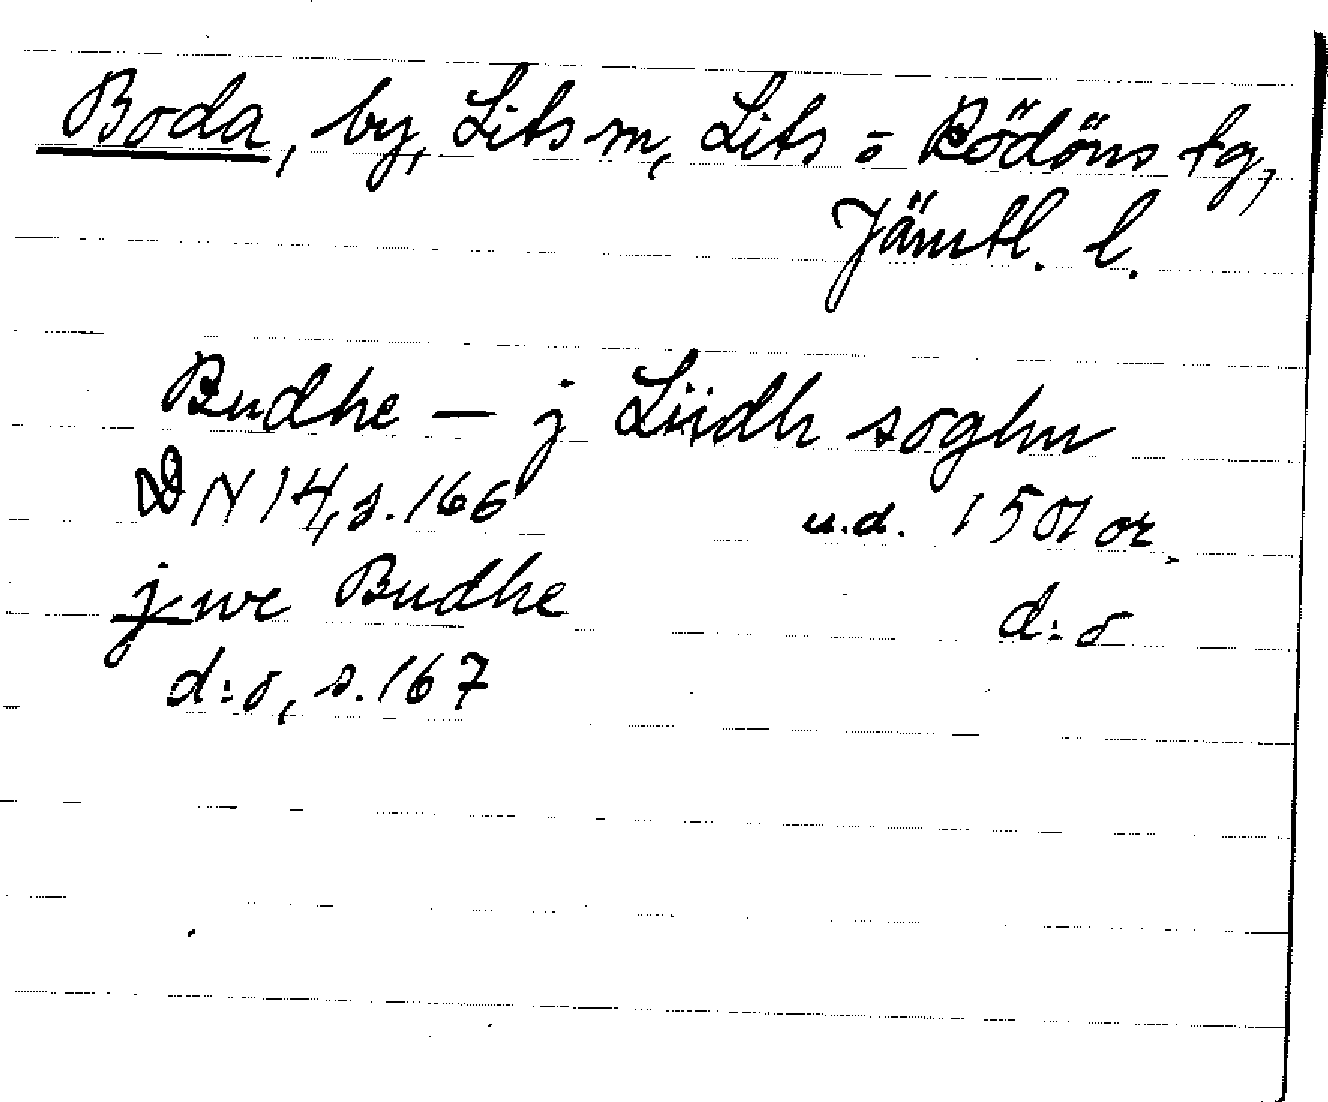 Boda, by, Lits sn, Lits o Rödöns tg,
Jämtl. l.
Budhe — j Liidh soghn
DN 14, s. 166 u.d. 1501 or.
j we Budhe d:o
d:o, s. 167